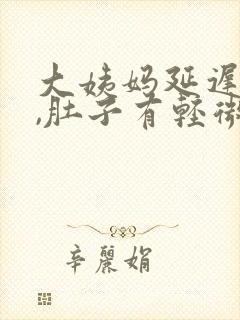 大姨妈延迟
,肚子有轻微
辛丽娟